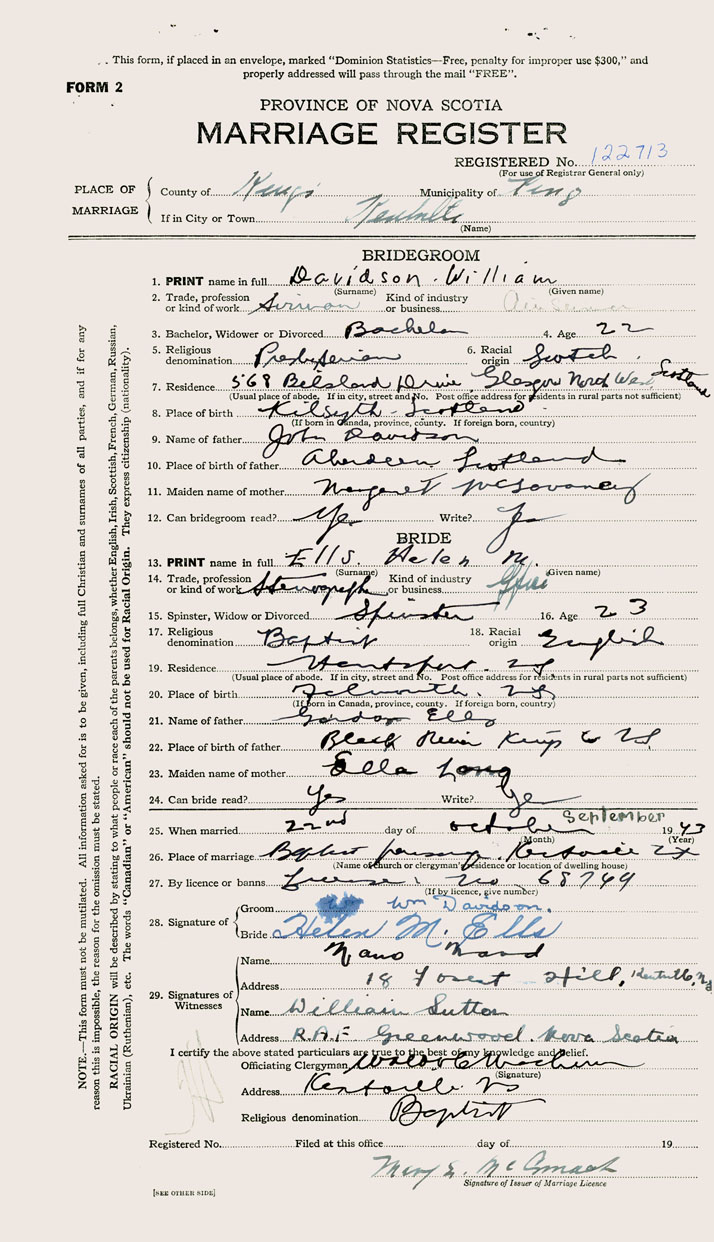 This form, if placed in an envelope, marked "Dominion Statistics—Free, penalty for improper use $300," and
properly addressed will pass through the mail "FREE".
FORM 2
PROVINCE OF NOVA SCOTIA
MARRIAGE REGISTER
REGISTERED No. 122713
(For use of Registrar General only)
PLACE OF MARRIAGE
County of Kings Municipality of King
If in City or Town Kentville
(Name)
BRIDEGROOM
1. PRINT name in full Davidson. William
(Surname) (Given name)
2. Trade, profession or kind of work Kind of industry or business
3. Bachelor, Widower or Divorced Bachelor 4. Age 22
5. Religious denomination Presbyterian 6. Racial origin Scotch.
7. Residence 568 Bilsland Drive Glasgow North West, Scotland
(Usual place of abode. If in city, street and No. Post office address for residents in rural parts not sufficient)
8. Place of birth Kilsyth - Scotland
(If born in Canada, province, county. If foreign born, country)
9. Name of father John Davidson
10. Place of birth of father Aberdeen Scotland
11. Maiden name of mother Margaret
12. Can bridegroom read? Yes Write? Yes
BRIDE
13. PRINT name in full Ells. Helen M.
(Surname) (Given name)
14. Trade, profession or kind of work Kind of industry or business Office
15. Spinster, Widow or Divorced Spinster 16. Age 23
17. Religious denomination Baptist 18. Racial origin English
19. Residence Hantsport. NS
(Usual place of abode. If in city, street and No. Post office address for residents in rural parts not sufficient)
20. Place of birth Falmouth. NS
(If born in Canada, province, county. If foreign born, country)
21. Name of father Gordon Ells
22. Place of birth of father Black River Kings Co NS
23. Maiden name of mother Ella Long
24. Can bride read? Yes Write? Yes
September
25. When married 22nd day of october 1943
(Month) (Year)
26. Place of marriage Baptist parsonage, Kentville NS
(Name of church or clergyman's residence or location of dwelling house)
27. By licence or banns License. No 68749
(If by licence, give number)
28. Signature of
Groom Wm Davidson.
Bride Helen M. Ells
29. Signatures of Witnesses
Name
Address 18 Forest Hill, Kentville, N.S.
Name William Sutton
Address R.A.F. Greenwood. Nova Scotia
I certify the above stated particulars are true to the best of my knowledge and belief.
Officiating Clergyman
(Signature)
Address Kentville NS
Religious denomination Baptist
Registered No. Filed at this office day of 19
Signature of Issuer of Marriage Licence
[SEE OTHER SIDE]
NOTE.—This form must not be mutilated. All information asked for is to be given, including full Christian and surnames of all parties, and if for any
reason this is impossible, the reason for the omission must be stated.
RACIAL ORIGIN will be described by stating to what people or race each of the parents belongs, whether English, Irish, Scottish, French, German, Russian,
Ukrainian (Ruthenian), etc. The words "Canadian" or "American" should not be used for Racial Origin. They express citizenship (nationality).